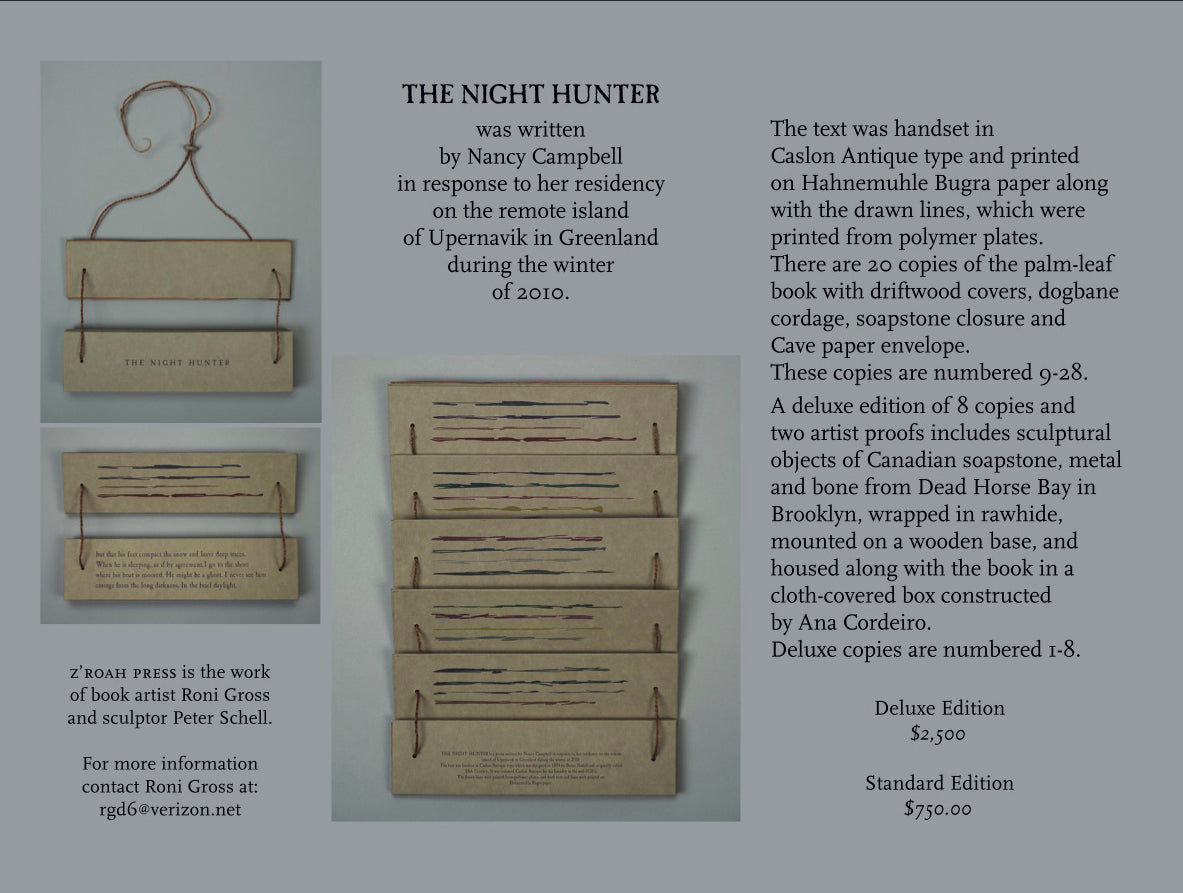 THE NIGHT HUNTER
was written
by Nancy Campbell
in response to her residency
on the remote island
of Upernavik in Greenland
during the winter
of 2010.
THE NIGHT HUNTER
but that his feet compact the snow and leave deep traces.
When he is sleeping, as if by agreement, I go to the shore
where his boat is moored. He might be a ghost. I never see him
emerge from the long darkness. In the brief daylight,
Z'ROAH PRESS is the work
of book artist Roni Gross
and sculptor Peter Schell.
For more information
contact Roni Gross at:
rgd6@verizon.net
THE NIGHT HUNTER is a poem written by Nancy Campbell in response to her residency on the remote
island of Upernavik in Greenland during the winter of 2010.
The text was handset in
Caslon Antique type and printed
on Hahnemuhle Bugra paper along
with the drawn lines, which were
printed from polymer plates.
There are 20 copies of the palm-leaf
book with driftwood covers, dogbane
cordage, soapstone closure and
Cave paper envelope.
These copies are numbered 9-28.
A deluxe edition of 8 copies and
two artist proofs includes sculptural
objects of Canadian soapstone, metal
and bone from Dead Horse Bay in
Brooklyn, wrapped in rawhide,
mounted on a wooden base, and
housed along with the book in a
cloth-covered box constructed
by Ana Cordeiro.
Deluxe copies are numbered 1-8.
Deluxe Edition
$2,500
Standard Edition
$750.00